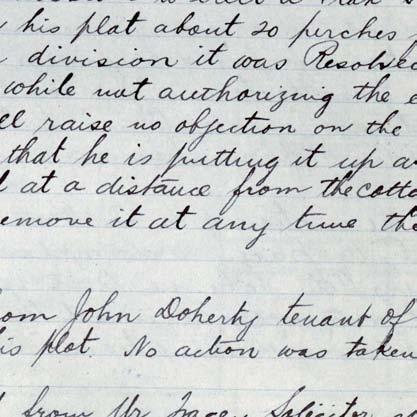 his plat about 20 perches
division it was Resolved
while not authorizing the
raise no objection on the
that he is putting it up
at a distance from the cotta
remove it at any time the
from John Doherty tenant of
his plot. No action was taken
from Mr